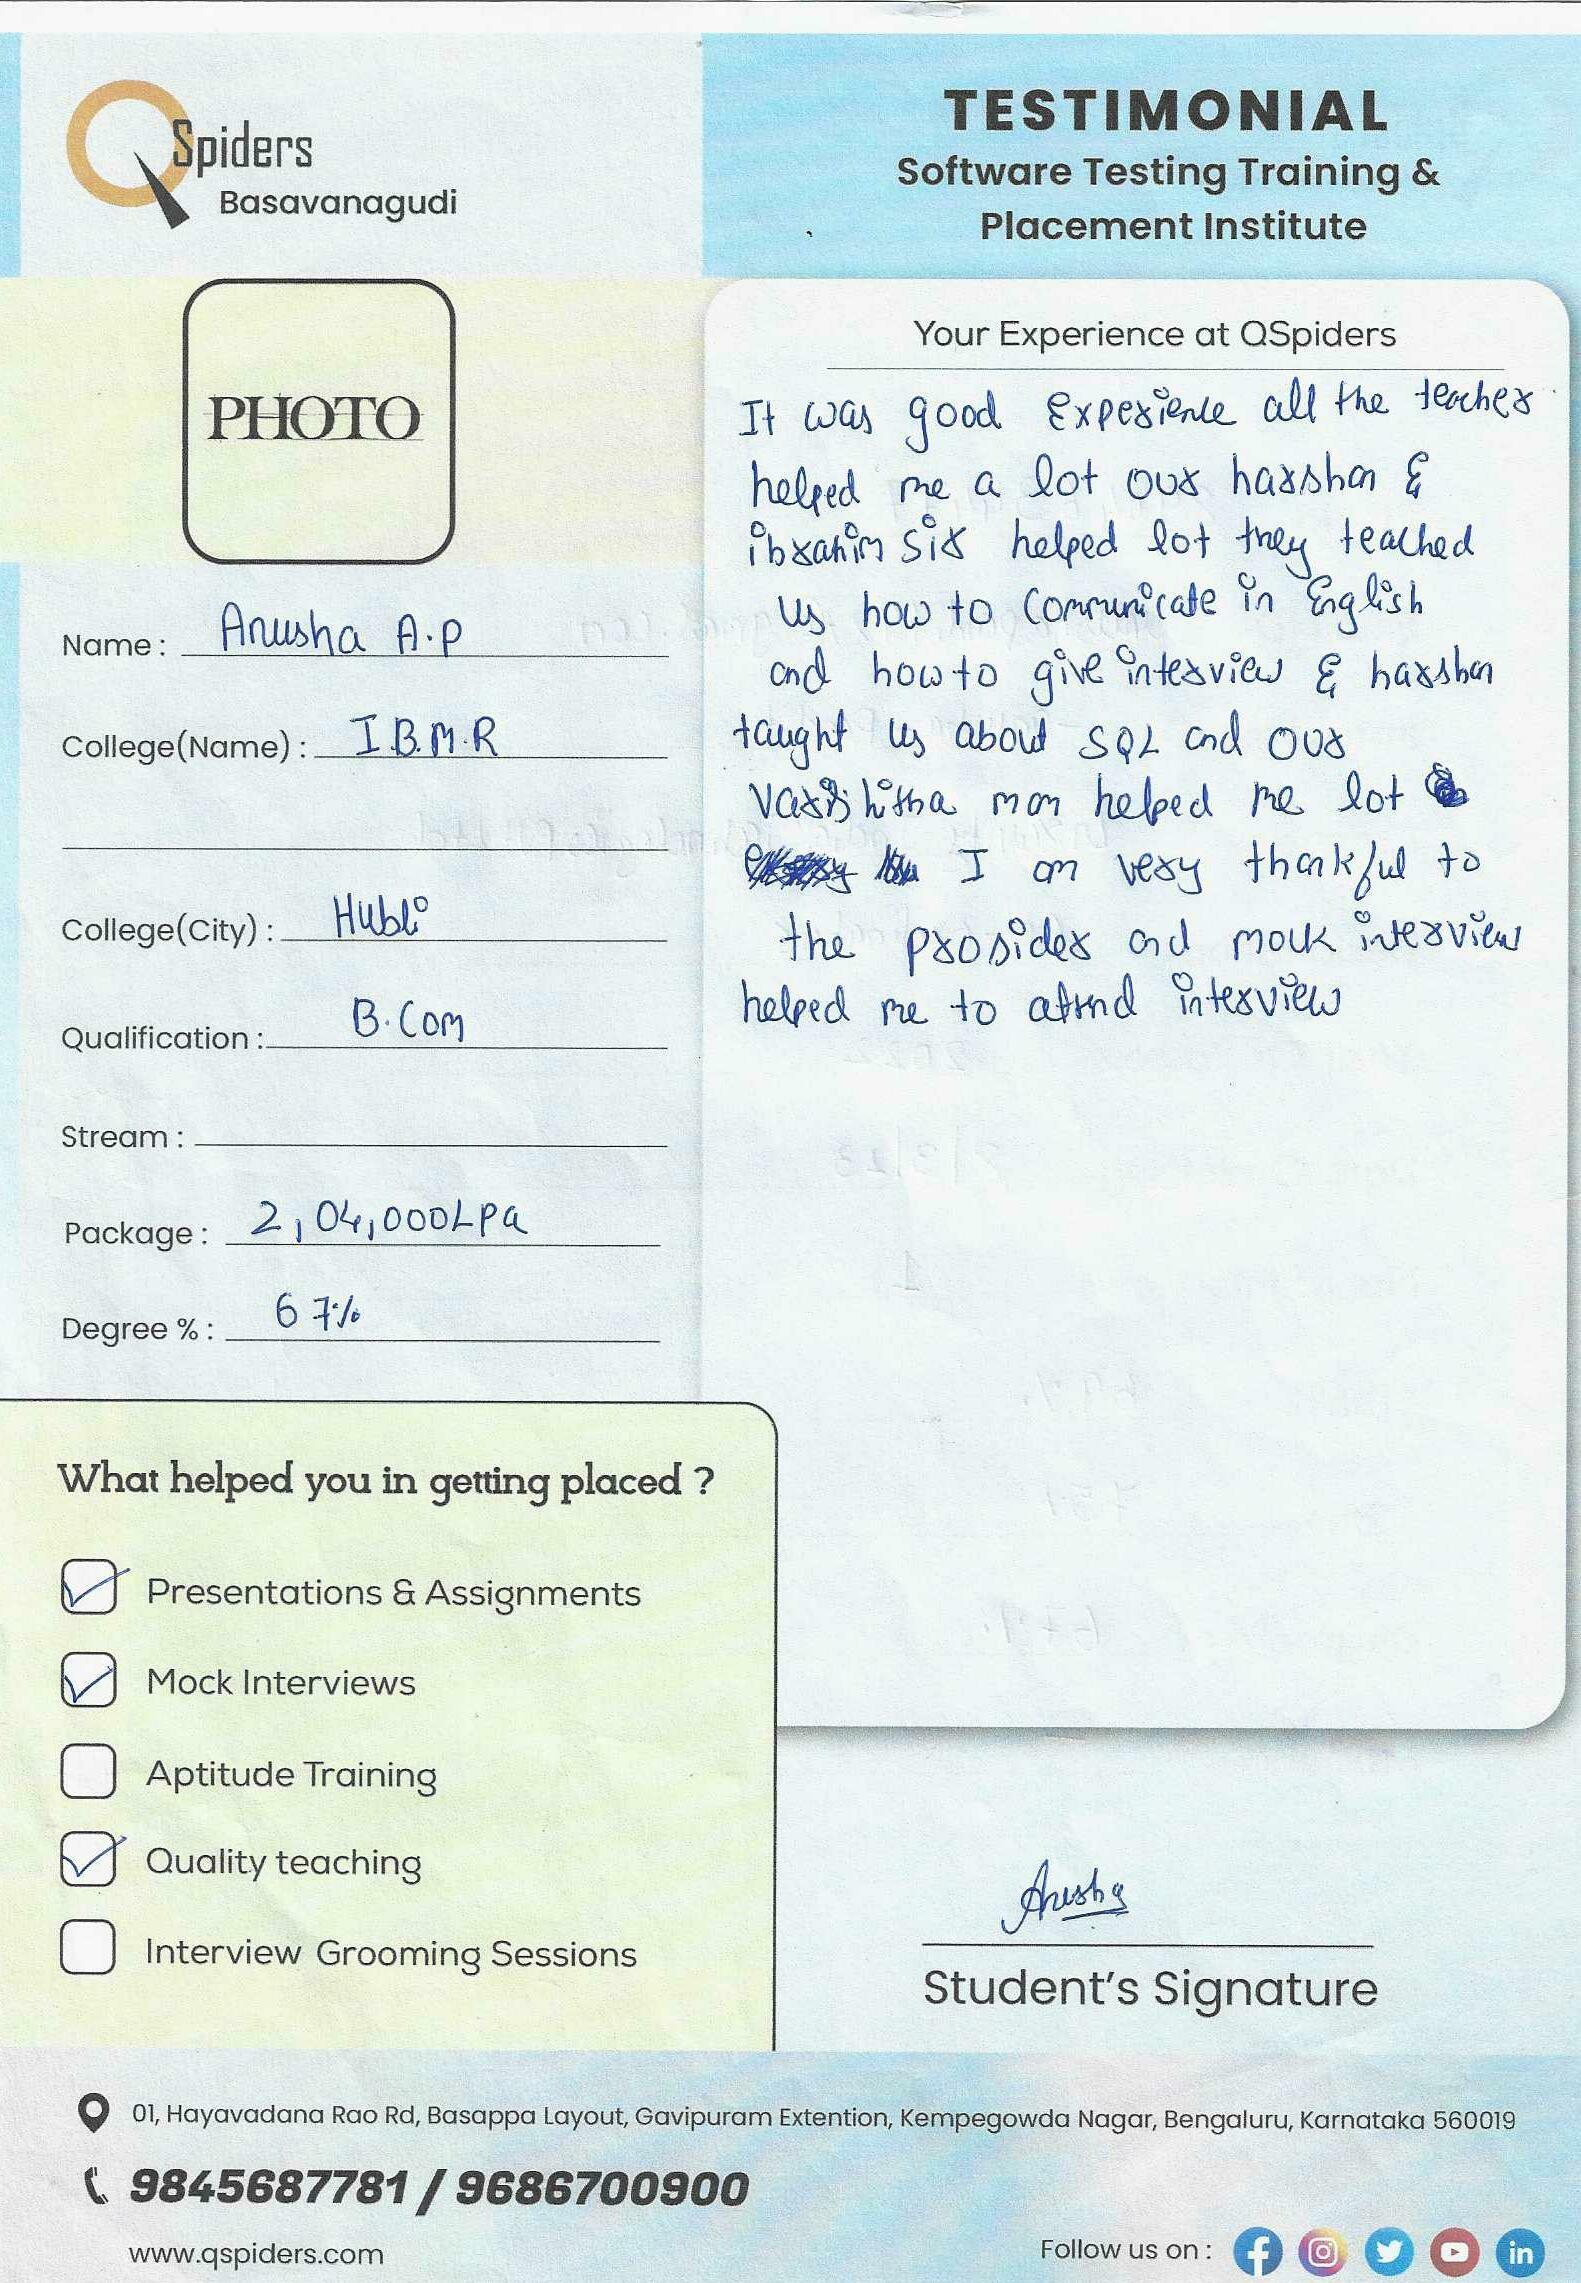 QSpiders
Basavanagudi
TESTIMONIAL
Software Testing Training &
Placement Institute
PHOTO
Name : Anusha A.P
College(Name) : I.B.M.R
College(City) : Hubli
Qualification : B.Com
Stream :
Package : 2,04,000Lpa
Degree % : 67%
Your Experience at QSpiders
It was good Experience all the teacher
helped me a lot our harshan &
ibrahim sir helped lot they teached
us how to communicate in English
and how to give interview & harshan
taught us about SQL and our
mam helped me lot
I am very thankful to
the and mock interview
helped me to attend interview
What helped you in getting placed ?
Presentations & Assignments
Mock Interviews
Aptitude Training
Quality teaching
Interview Grooming Sessions
Anusha
Student's Signature
01, Hayavadana Rao Rd, Basappa Layout, Gavipuram Extention, Kempegowda Nagar, Bengaluru, Karnataka 560019
9845687781 / 9686700900
www.qspiders.com
Follow us on :